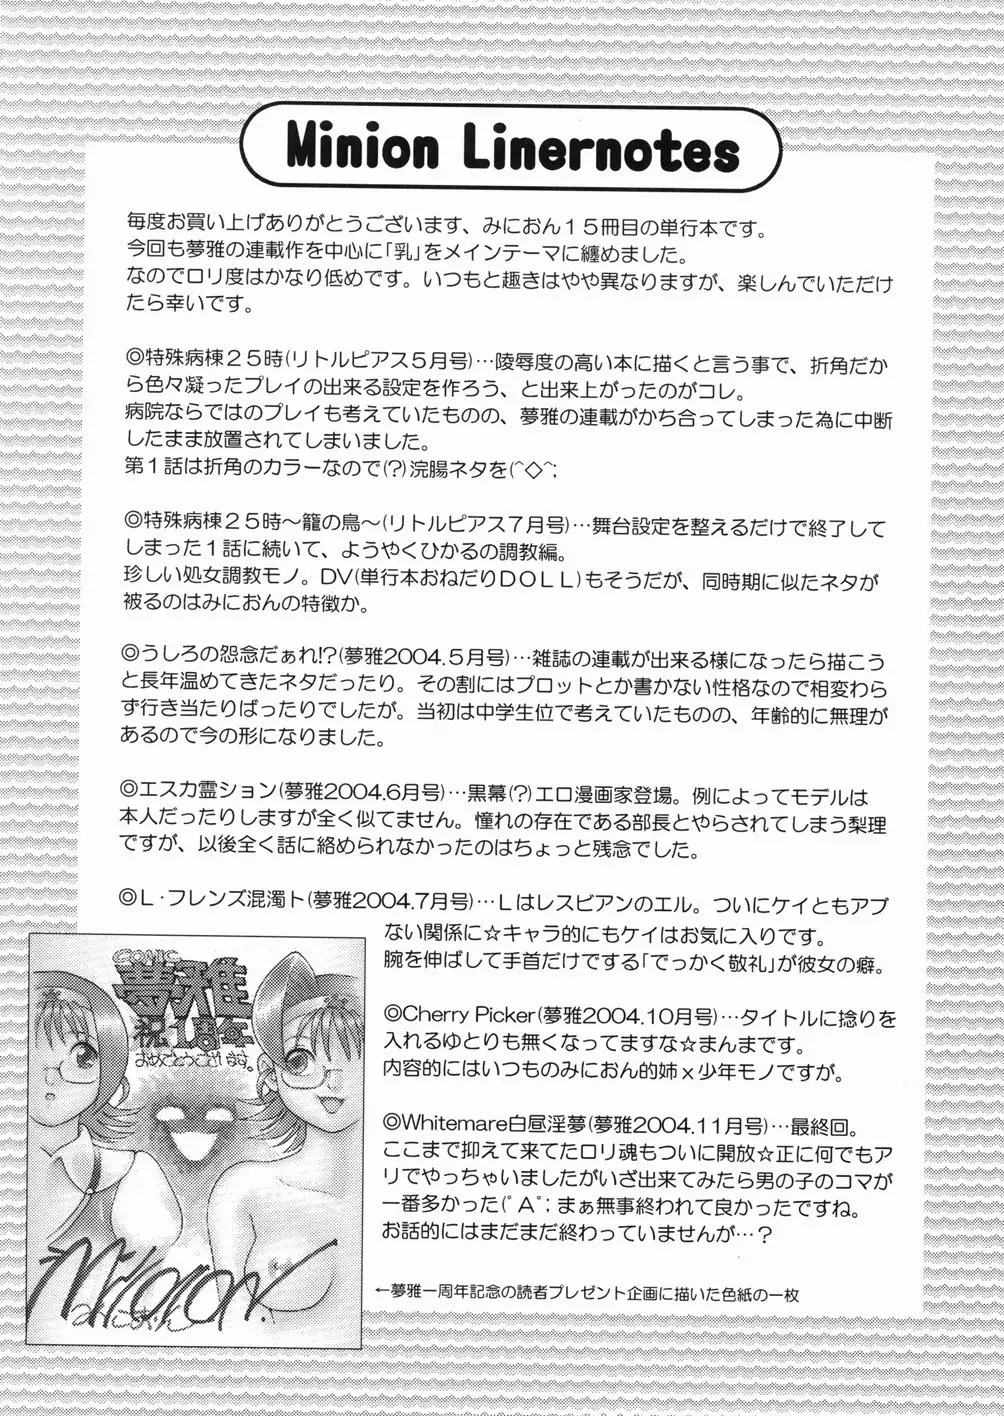 Minion Linernotes
毎度お買い上げありがとうございます、みにおん１５冊目の単行本です。
今回も夢雅の連載作を中心に「乳」をメインテーマに纏めました。
なのでロリ度はかなり低めです。いつもと趣きはやや異なりますが、楽しんでいただけ
たら幸いです。
◎特殊病棟２５時(リトルピアス５月号)…陵辱度の高い本に描くと言う事で、折角だか
ら色々凝ったプレイの出来る設定を作ろう、と出来上がったのがコレ。
病院ならではのプレイも考えていたものの、夢雅の連載がかち合ってしまった為に中断
したまま放置されてしまいました。
第１話は折角のカラーなので(?)浣腸ネタを(^◇^;
◎特殊病棟２５時～籠の鳥～(リトルピアス７月号)…舞台設定を整えるだけで終了して
しまった１話に続いて、ようやくひかるの調教編。
珍しい処女調教モノ。DV(単行本おねだりＤＯＬＬ)もそうだが、同時期に似たネタが
被るのはみにおんの特徴か。
◎うしろの怨念だぁれ!?(夢雅2004.５月号)…雑誌の連載が出来る様になったら描こう
と長年温めてきたネタだったり。その割にはプロットとか書かない性格なので相変わら
ず行き当たりばったりでしたが。当初は中学生位で考えていたものの、年齢的に無理が
あるので今の形になりました。
◎エスカ霊ション(夢雅2004.6月号)…黒幕(?)エロ漫画家登場。例によってモデルは
本人だったりしますが全く似てません。憧れの存在である部長とやらされてしまう梨理
ですが、以後全く話に絡められなかったのはちょっと残念でした。
◎Ｌ・フレンズ混濁ト(夢雅2004.7月号)…Ｌはレスビアンのエル。ついにケイともアブ
ない関係に☆キャラ的にもケイはお気に入りです。
腕を伸ばして手首だけでする「でっかく敬礼」が彼女の癖。
◎Cherry Picker(夢雅2004.10月号)…タイトルに捻りを
入れるゆとりも無くなってますな☆まんまです。
内容的にはいつものみにおん的姉ｘ少年モノですが。
◎Whitemare白昼淫夢(夢雅2004.11月号)…最終回。
ここまで抑えて来てたロリ魂もついに開放☆正に何でもア
リでやっちゃいましたがいざ出来てみたら男の子のコマが
一番多かった(ﾟAﾟ; まぁ無事終われて良かったですね。
お話的にはまだまだ終わっていませんが…？
COMIC
夢雅
祝1周年
おめでとうございます。
Minion.
みにおん
←夢雅一周年記念の読者プレゼント企画に描いた色紙の一枚